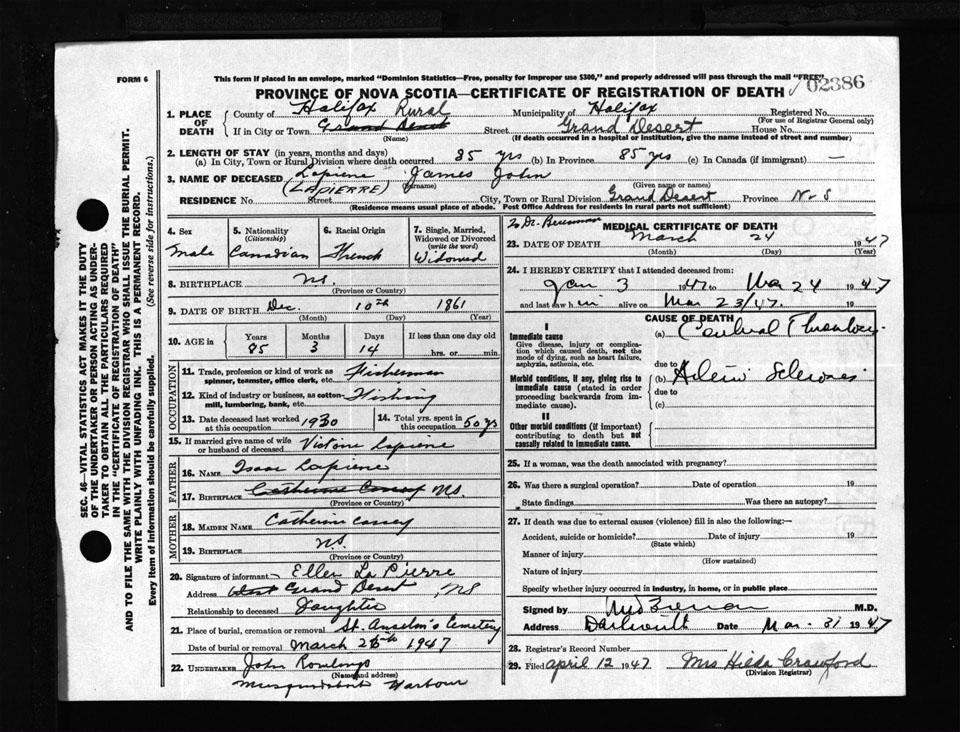 FORM 6
This form if placed in an envelope, marked "Dominion Statistics—Free, penalty for improper use $300," and properly addressed will pass through the mail "FREE"
PROVINCE OF NOVA SCOTIA—CERTIFICATE OF REGISTRATION OF DEATH
02386
1. PLACE OF DEATH
County of Halifax Rural Municipality of Halifax Registered No.
(For use of Registrar General only)
If in City or Town Grand Desert Street Grand Desert House No.
(Name) (If death occurred in a hospital or institution, give the name instead of street and number)
2. LENGTH OF STAY (in years, months and days)
(a) In City, Town or Rural Division where death occurred 85 yrs (b) In Province 85 yrs (c) In Canada (if immigrant) —
3. NAME OF DECEASED Lapierre James John
(LAPIERRE) (Surname) (Given name or names)
RESIDENCE No. Street City, Town or Rural Division Grand Desert Province N.S
(Residence means usual place of abode. Post Office Address for residents in rural parts not sufficient)
4. Sex
Male
5. Nationality
(Citizenship)
Canadian
6. Racial Origin
French
7. Single, Married, Widowed or Divorced
(write the word)
Widowed
8. BIRTHPLACE NS.
(Province or Country)
9. DATE OF BIRTH Dec. 10th 1861
(Month) (Day) (Year)
10. AGE in Years Months Days If less than one day old
85 3 14 hrs. or min.
OCCUPATION
11. Trade, profession or kind of work as spinner, teamster, office clerk, etc. Fisherman
12. Kind of industry or business, as cotton-mill, lumbering, bank, etc. Fishing
13. Date deceased last worked at this occupation 1930
14. Total yrs. spent in this occupation 50 yrs
15. If married give name of wife or husband of deceased Victoire Lapierre
FATHER
16. NAME Isaac Lapierre
17. BIRTHPLACE Catherine Cassey NS.
(Province or Country)
MOTHER
18. MAIDEN NAME Catherine Cassey
19. BIRTHPLACE NS.
(Province or Country)
20. Signature of informant Ellen La Pierre
Address West Grand Desert, NS
Relationship to deceased Daughter
21. Place of burial, cremation or removal St. Anselm's Cemetery
Date of burial or removal March 26th 1947
22. UNDERTAKER John Rowlings
(Name and address)
Musquodoboit Harbour
MEDICAL CERTIFICATE OF DEATH
23. DATE OF DEATH March 24 1947
(Month) (Day) (Year)
24. I HEREBY CERTIFY that I attended deceased from:
Jan 3 1947 to Mar 24 1947
and last saw him alive on Mar 23/47. 19
CAUSE OF DEATH
I
Immediate cause
Give disease, injury or complication which caused death, not the mode of dying, such as heart failure, asphyxia, asthenia, etc.
(a) Cerebral Thrombosis
due to
Morbid conditions, if any, giving rise to immediate cause (stated in order proceeding backwards from immediate cause).
(b)
due to
(c)
II
Other morbid conditions (if important) contributing to death but not causally related to immediate cause.
25. If a woman, was the death associated with pregnancy?
26. Was there a surgical operation? Date of operation 19
State findings Was there an autopsy?
27. If death was due to external causes (violence) fill in also the following:—
Accident, suicide or homicide? Date of injury 19
(State which)
Manner of injury
(How sustained)
Nature of injury
Specify whether injury occurred in industry, in home, or in public place
Signed by M.D.
Address Dartmouth Date Mar. 31 1947
28. Registrar's Record Number
29. Filed April 12 1947 Mrs Hilda Crawford
(Division Registrar)
SEC. 46—VITAL STATISTICS ACT MAKES IT THE DUTY
OF THE UNDERTAKER OR PERSON ACTING AS UNDER-
TAKER TO OBTAIN ALL THE PARTICULARS REQUIRED
IN THE "CERTIFICATE OF REGISTRATION OF DEATH"
AND TO FILE THE SAME WITH THE DIVISION REGISTRAR WHO SHALL ISSUE THE BURIAL PERMIT.
WRITE PLAINLY WITH UNFADING INK. THIS IS A PERMANENT RECORD.
Every item of information should be carefully supplied. (See reverse side for instructions.)